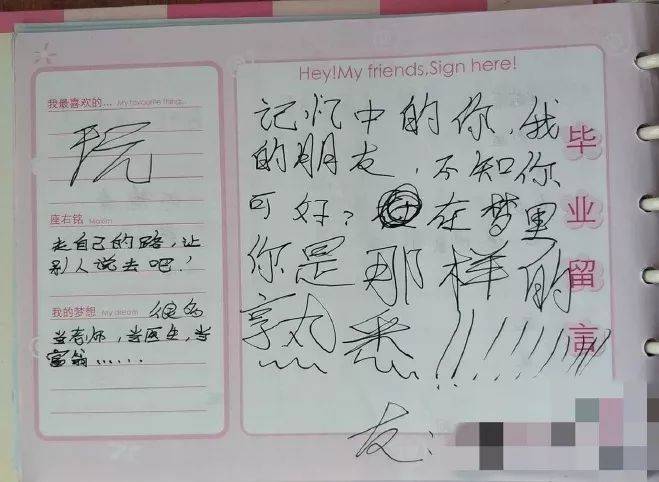 Hey!My friends,Sign here!
我最喜欢的... My favourite thing...
玩
座右铭 Maxim
走自己的路,让
别人说去吧!
我的梦想 My dream 很多
当老师,当医生,当
富翁......
记忆中的你,我
的朋友,不知你
可好?在梦里
你是那样的
熟悉!!!!!!!!!
友:
毕业留言